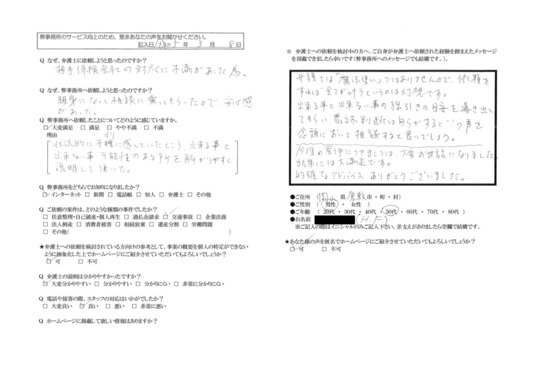 弊事務所のサービス向上のため、是非あなたの声をお聞かせください。
記入日 5年 3月 8日
Q なぜ、弁護士に依頼しようと思ったのですか？
相手保険会社の対応に不満があった為。
Q なぜ、弊事務所へ依頼しようと思ったのですか？
親身になって相談に乗ってもらったので 安心感
があった。
Q 弊事務所に依頼したことについてどのように感じていますか。
□大変満足 □満足 □やや不満 □不満
理由
状況的に不確に感じていたところ 出来る事と
出来ない事 可能性のある所を解かりやすく
説明して頂いた。
Q 弊事務所をどちらでお知りになりましたか？
□インターネット □新聞 □電話帳 □知人 □弁護士 □その他
Q ご依頼の案件は、どのような種類の事件でしたか？
□任意整理・自己破産・個人再生 □過払金請求 □交通事故 □企業法務
□法人破産 □消費者被害 □相続放棄 □遺産分割 □労働問題
□その他( )
★弁護士への依頼を検討されている方向けの参考として、事案の概要を個人の特定ができない
ように抽象化した上でホームページにご紹介をさせていただいてもよろしいでしょうか？
□可 □不可
Q 弁護士の説明は分かりやすかったですか？
□大変分かりやすい □分かりやすい □分かりにくい □非常に分かりにくい
Q 電話や接客の際、スタッフの対応はいかがでしたか？
□大変良い □良い □悪い □非常に悪い
Q ホームページに掲載して欲しい情報はありますか？
☆ 弁護士への依頼を検討中の方へ、ご自身が弁護士へ依頼された経験を踏まえたメッセージ
を頂戴できましたら幸いです(弊事務所へのメッセージでも結構です。)。
弁護士は「魔法使い」ではありませんので、依頼を
すれば全てがかなうというのは幻想です。
出来る事と出来ない事の線引きの目安を導き出し
てもらい 最終判断は自らがする…いう事を
念頭において相談すると良いでしょう。
今回の案件につきましては 大変お世話になりました
結果には大満足です。
的確なアドバイス ありがとうございました。
●ご住所 岡山 県 倉敷 市・町・村)
●ご性別 ( 男性 ・ 女性 )
●ご年齢 ( 20代・30代・40代・50代・60代・70代・80代)
●お名前 (H.F)
※ご記入の際はイニシャルのみご記入下さい。差支えがありましたら空欄で結構です。
★あなた様の声を匿名でホームページにご紹介させていただいてもよろしいでしょうか？
□可 □不可